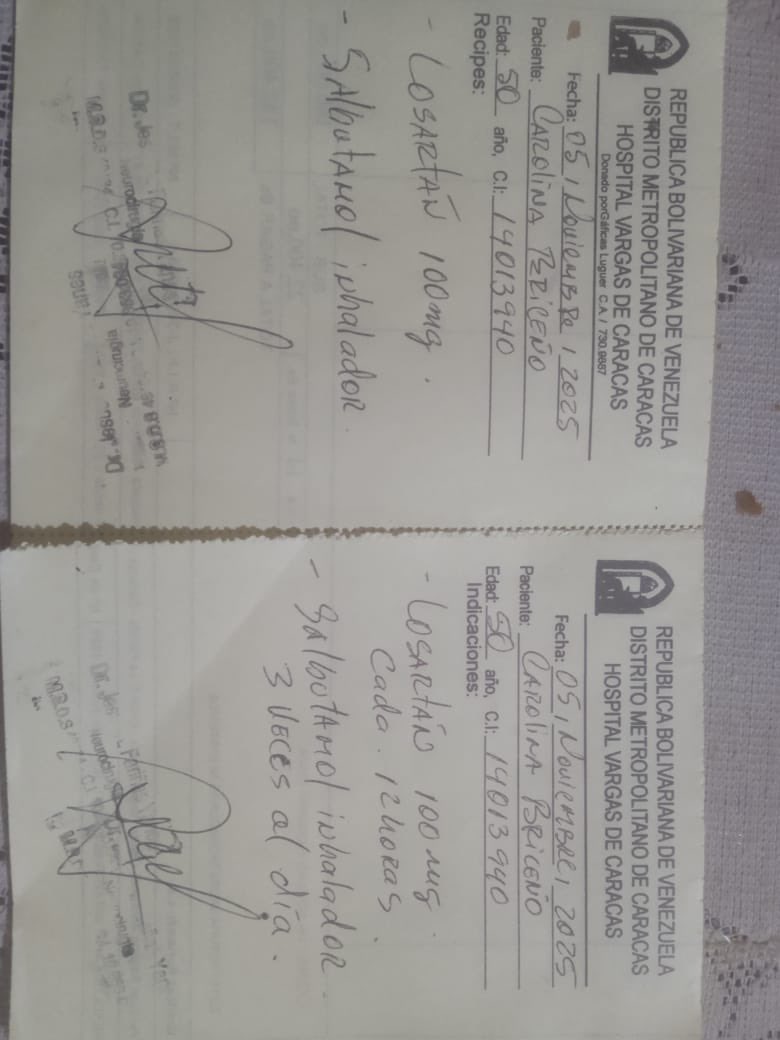 REPUBLICA BOLIVARIANA DE VENEZUELA
DISTRITO METROPOLITANO DE CARACAS
HOSPITAL VARGAS DE CARACAS
Donado porGáficas Luguer C.A. / 730.9687
Fecha: 05, Noviembre, 2025
Paciente: CAROLINA BRICEÑO
Edad: 50 año, C.I: 14013940
Recipes:
- LOSARTÁN 100mg.
- SAlbutamol inhalador.
Neurocirugía
REPUBLICA BOLIVARIANA DE VENEZUELA
DISTRITO METROPOLITANO DE CARACAS
HOSPITAL VARGAS DE CARACAS
Fecha: 05, Noviembre, 2025
Paciente: CAROLINA BRICEÑO
Edad: 50 año, C.I: 14013940
Indicaciones:
- LOSARTÁN 100mg.
Cada 12 horas.
- SAlbutamol inhalador
3 veces al día.